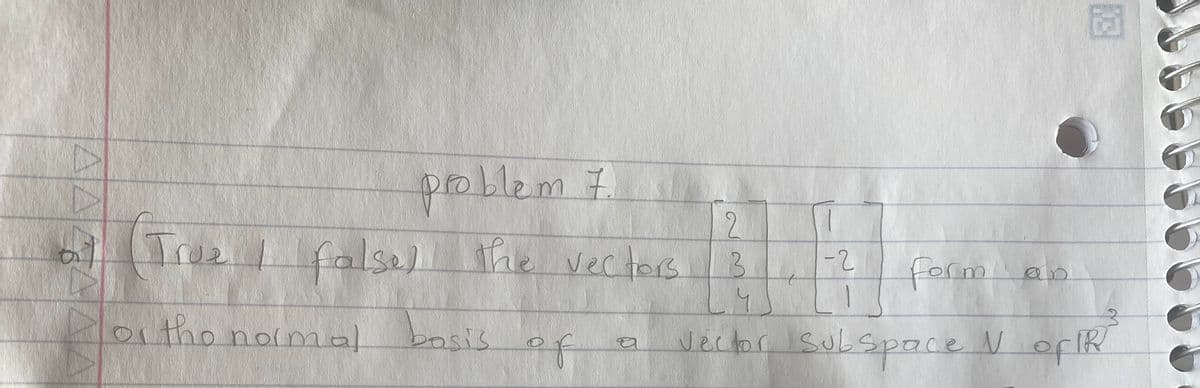 problem 7.
a) (True / false) the vectors [2 3 4], [1 -2 1] form an
orthonormal basis of a vector subspace V of ℝ³